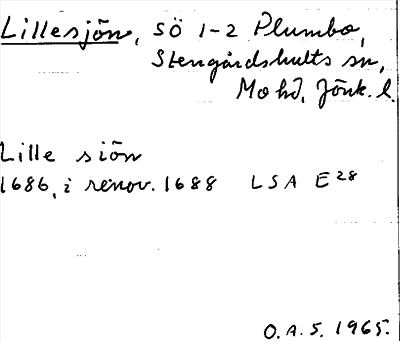 Lillesjön, SÖ 1-2 Plumbo,
Stengårdshults sn,
Mo hd, Jönk. l.
Lille siön
1686, i renov. 1688 LSA E 28
O.A.S. 1965.